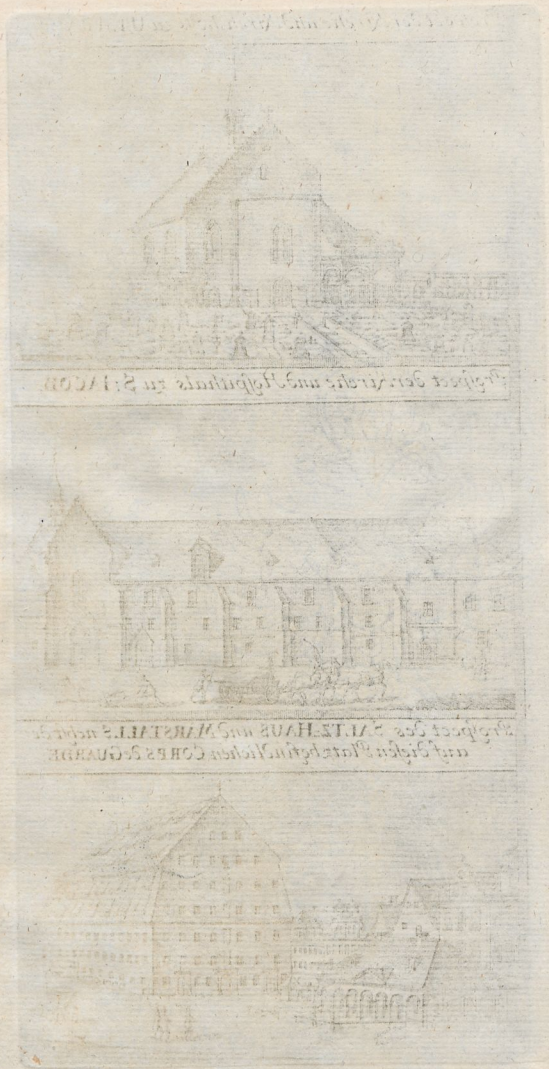 Prospect der Kirche und Hospithals zu S: IACOB
Prospect des SALTZ-HAUS und MARSTALLS nebst de
auf diesen Platz befindlichen CORPS de GUARDE